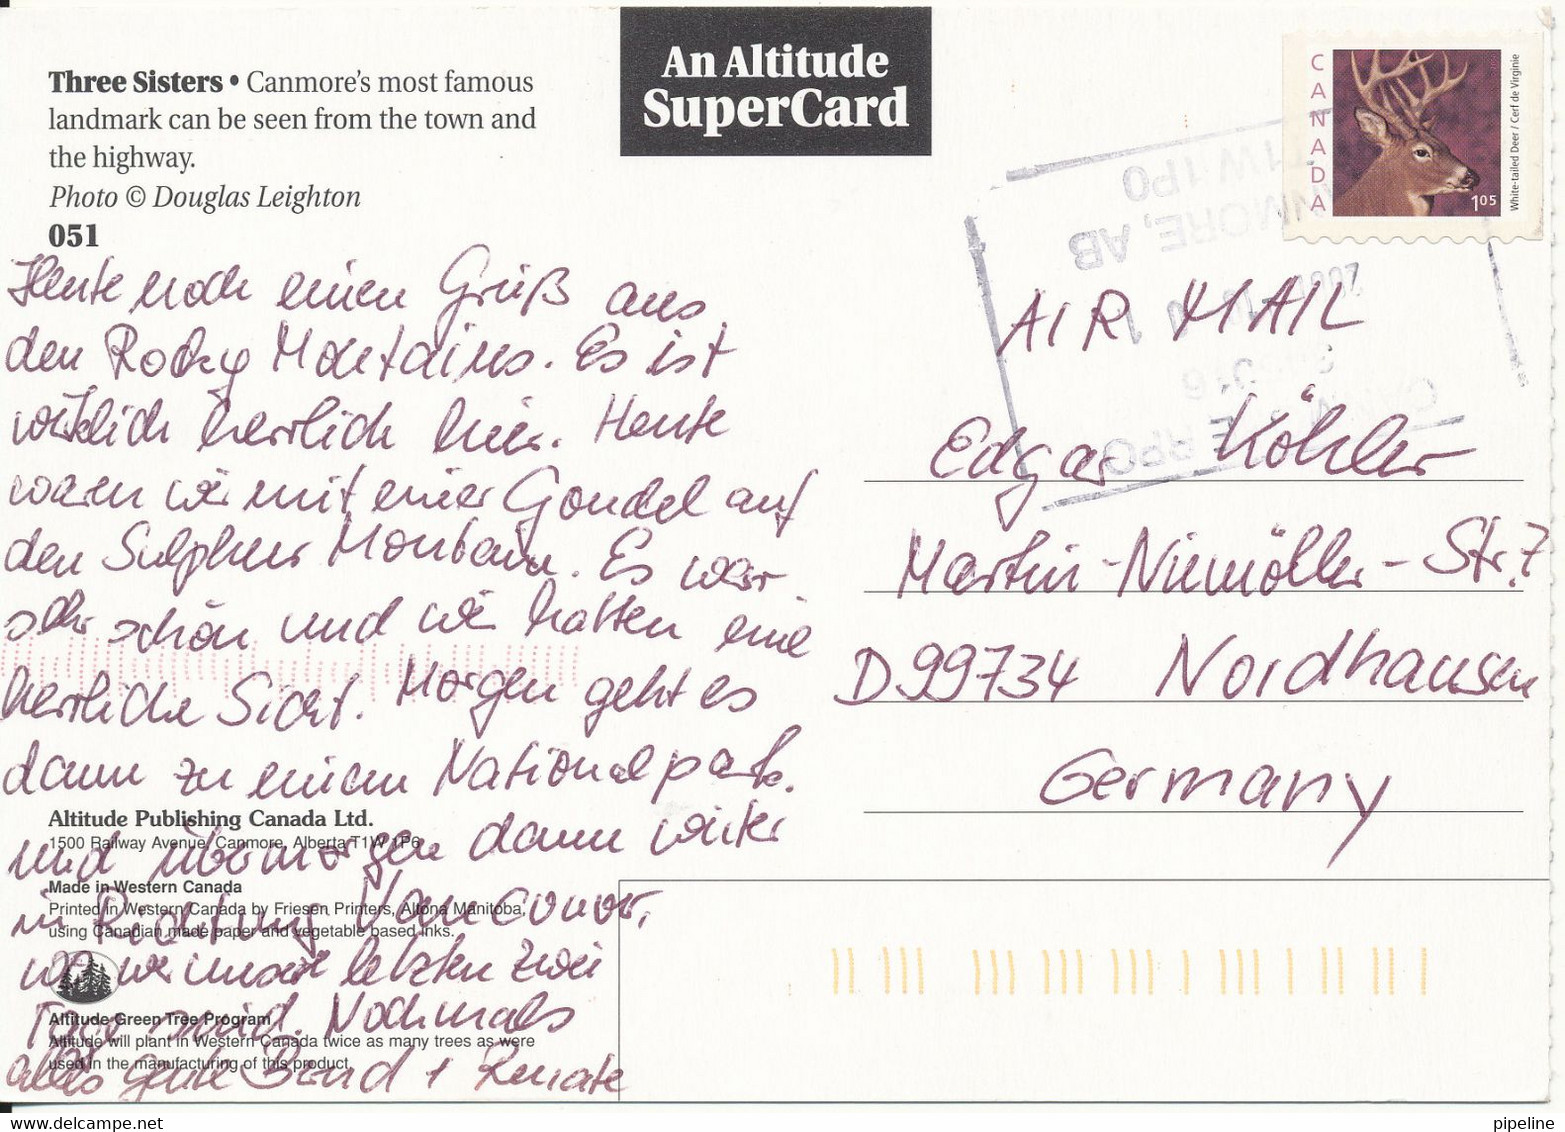 An Altitude
SuperCard
Three Sisters • Canmore's most famous
landmark can be seen from the town and
the highway.
Photo © Douglas Leighton
051
CANADA
White-tailed Deer / Cerf de Virginie
1 05
CANMORE, AB
T1W 1P0
Heute noch einen Gruß aus
den Rocky Mountains. Es ist
wirklich herrlich hier. Heute
waren wir mit einer Gondel auf
den Sulpher Mountain. Es war
sehr schön und wir hatten eine
herrliche Sicht. Morgen geht es
dann zu einem Nationalpark.
und übermorgen dann weiter
in Richtung Vancouver,
wo wir unsere letzten zwei
Tage sind. Nochmals
alles gute Bernd + Renate
Altitude Publishing Canada Ltd.
1500 Railway Avenue, Canmore, Alberta T1W 1P6
Made in Western Canada
Printed in Western Canada by Friesen Printers, Altona Manitoba,
using Canadian made paper and vegetable based inks.
Altitude Green Tree Program
Altitude will plant in Western Canada twice as many trees as were
used in the manufacturing of this product.
AIR MAIL
Edgar Köhler
Martin-Niemöller-Str. 7
D 99734 Nordhausen
Germany
www.delcampe.net
pipeline